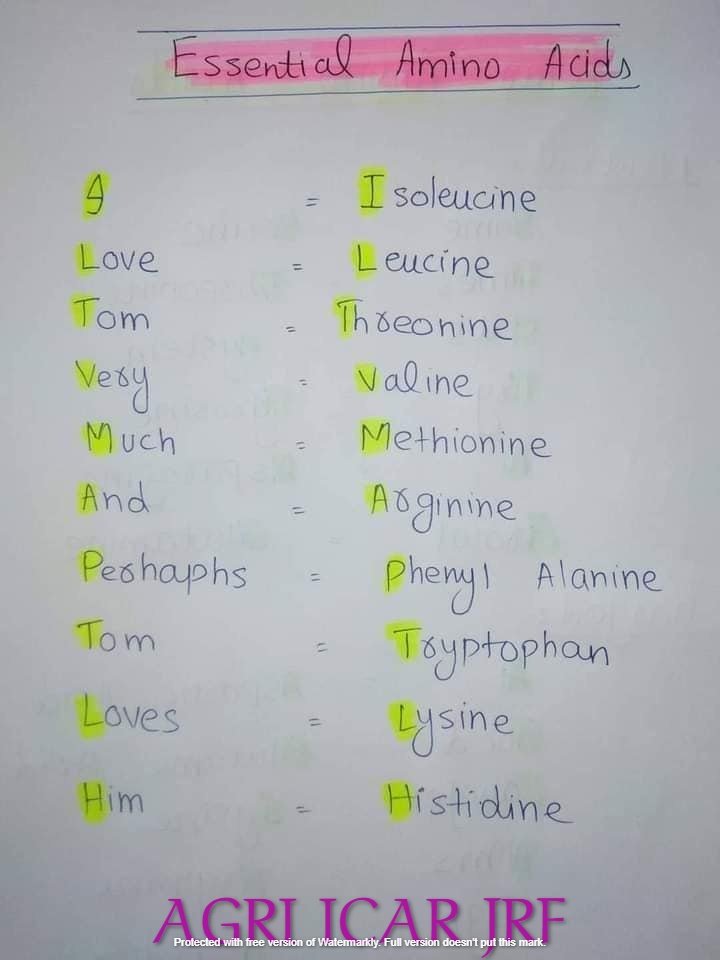 Essential Amino Acids
I = Isoleucine
Love = Leucine
Tom = Threonine
Very = Valine
Much = Methionine
And = Arginine
Perhaphs = Phenyl Alanine
Tom = Tryptophan
Loves = Lysine
Him = Histidine
AGRI ICAR JRF
Protected with free version of Watermarkly. Full version doesn't put this mark.